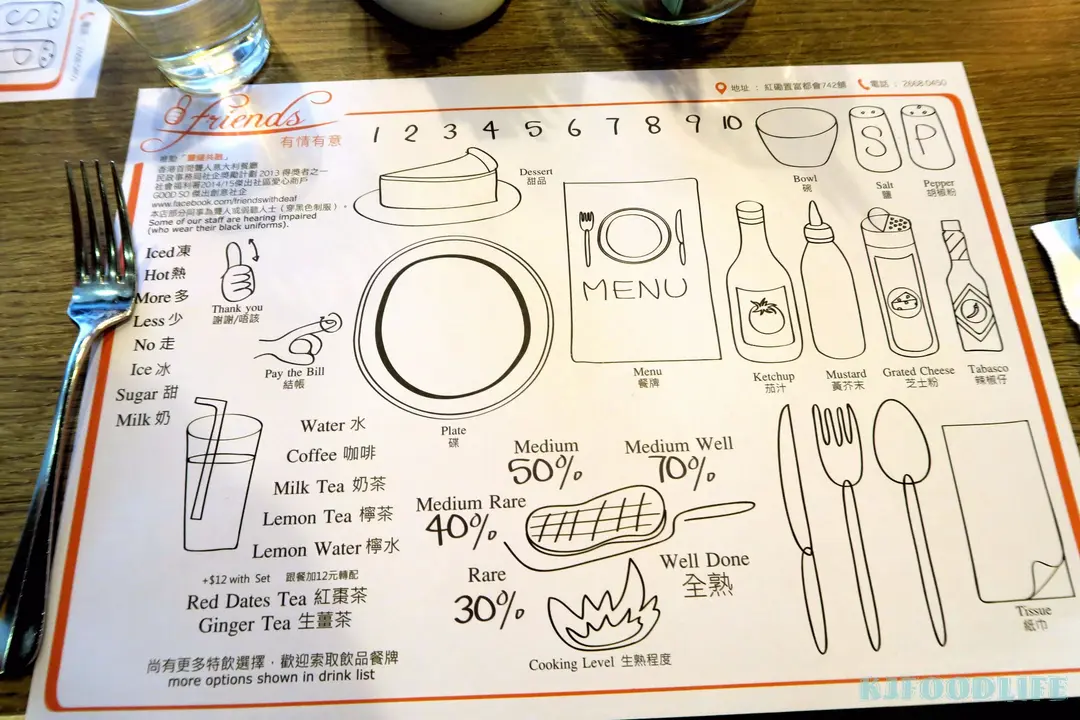 Friends
有情有意
地址 : 紅磡置富都會742號
電話 : 2668.0450
推動「聾健共融」
香港首間聾人意大利餐廳
民政事務局社企獎勵計劃 2013 得獎者之一
社會福利署2014/15傑出社區愛心商戶
GOOD SO 傑出創意社企
www.facebook.com/friendswithdeaf
本店部分同事為聾人或弱聽人士 (穿黑色制服) 。
Some of our staff are hearing impaired
(who wear their black uniforms).
1 2 3 4 5 6 7 8 9 10
Dessert
甜品
Bowl
碗
S
Salt
鹽
P
Pepper
胡椒粉
Iced 凍
Hot 熱
More 多
Less 少
No 走
Ice 冰
Sugar 甜
Milk 奶
Thank you
謝謝/唔該
Pay the Bill
結帳
Plate
碟
MENU
Menu
餐牌
Ketchup
茄汁
Mustard
黃芥末
Grated Cheese
芝士粉
Tabasco
辣椒仔
Water 水
Coffee 咖啡
Milk Tea 奶茶
Lemon Tea 檸茶
Lemon Water 檸水
+$12 with Set 跟餐加12元轉配
Red Dates Tea 紅棗茶
Ginger Tea 生薑茶
尚有更多特飲選擇，歡迎索取飲品餐牌
more options shown in drink list
Medium
50%
Medium Well
70%
Medium Rare
40%
Rare
30%
Well Done
全熟
Cooking Level 生熟程度
Tissue
紙巾
KJFOODLIFE